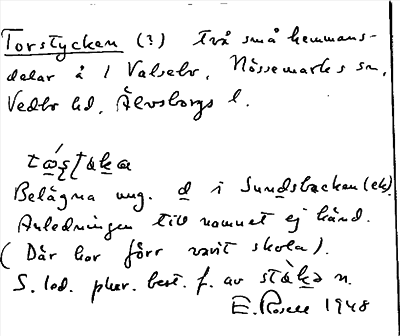 Torstycken (?) Två små hemmans-
delar å 1 Valsebo, Nössemarks sn,
Vedbo hd, Älvsborgs l.
Belägna ung. d i Sundsbacken (ek).
Anledningen till namnet ej känd.
(Där har förr varit skola).
S. led. plur. best. f. av n.
E. Rosell 1948